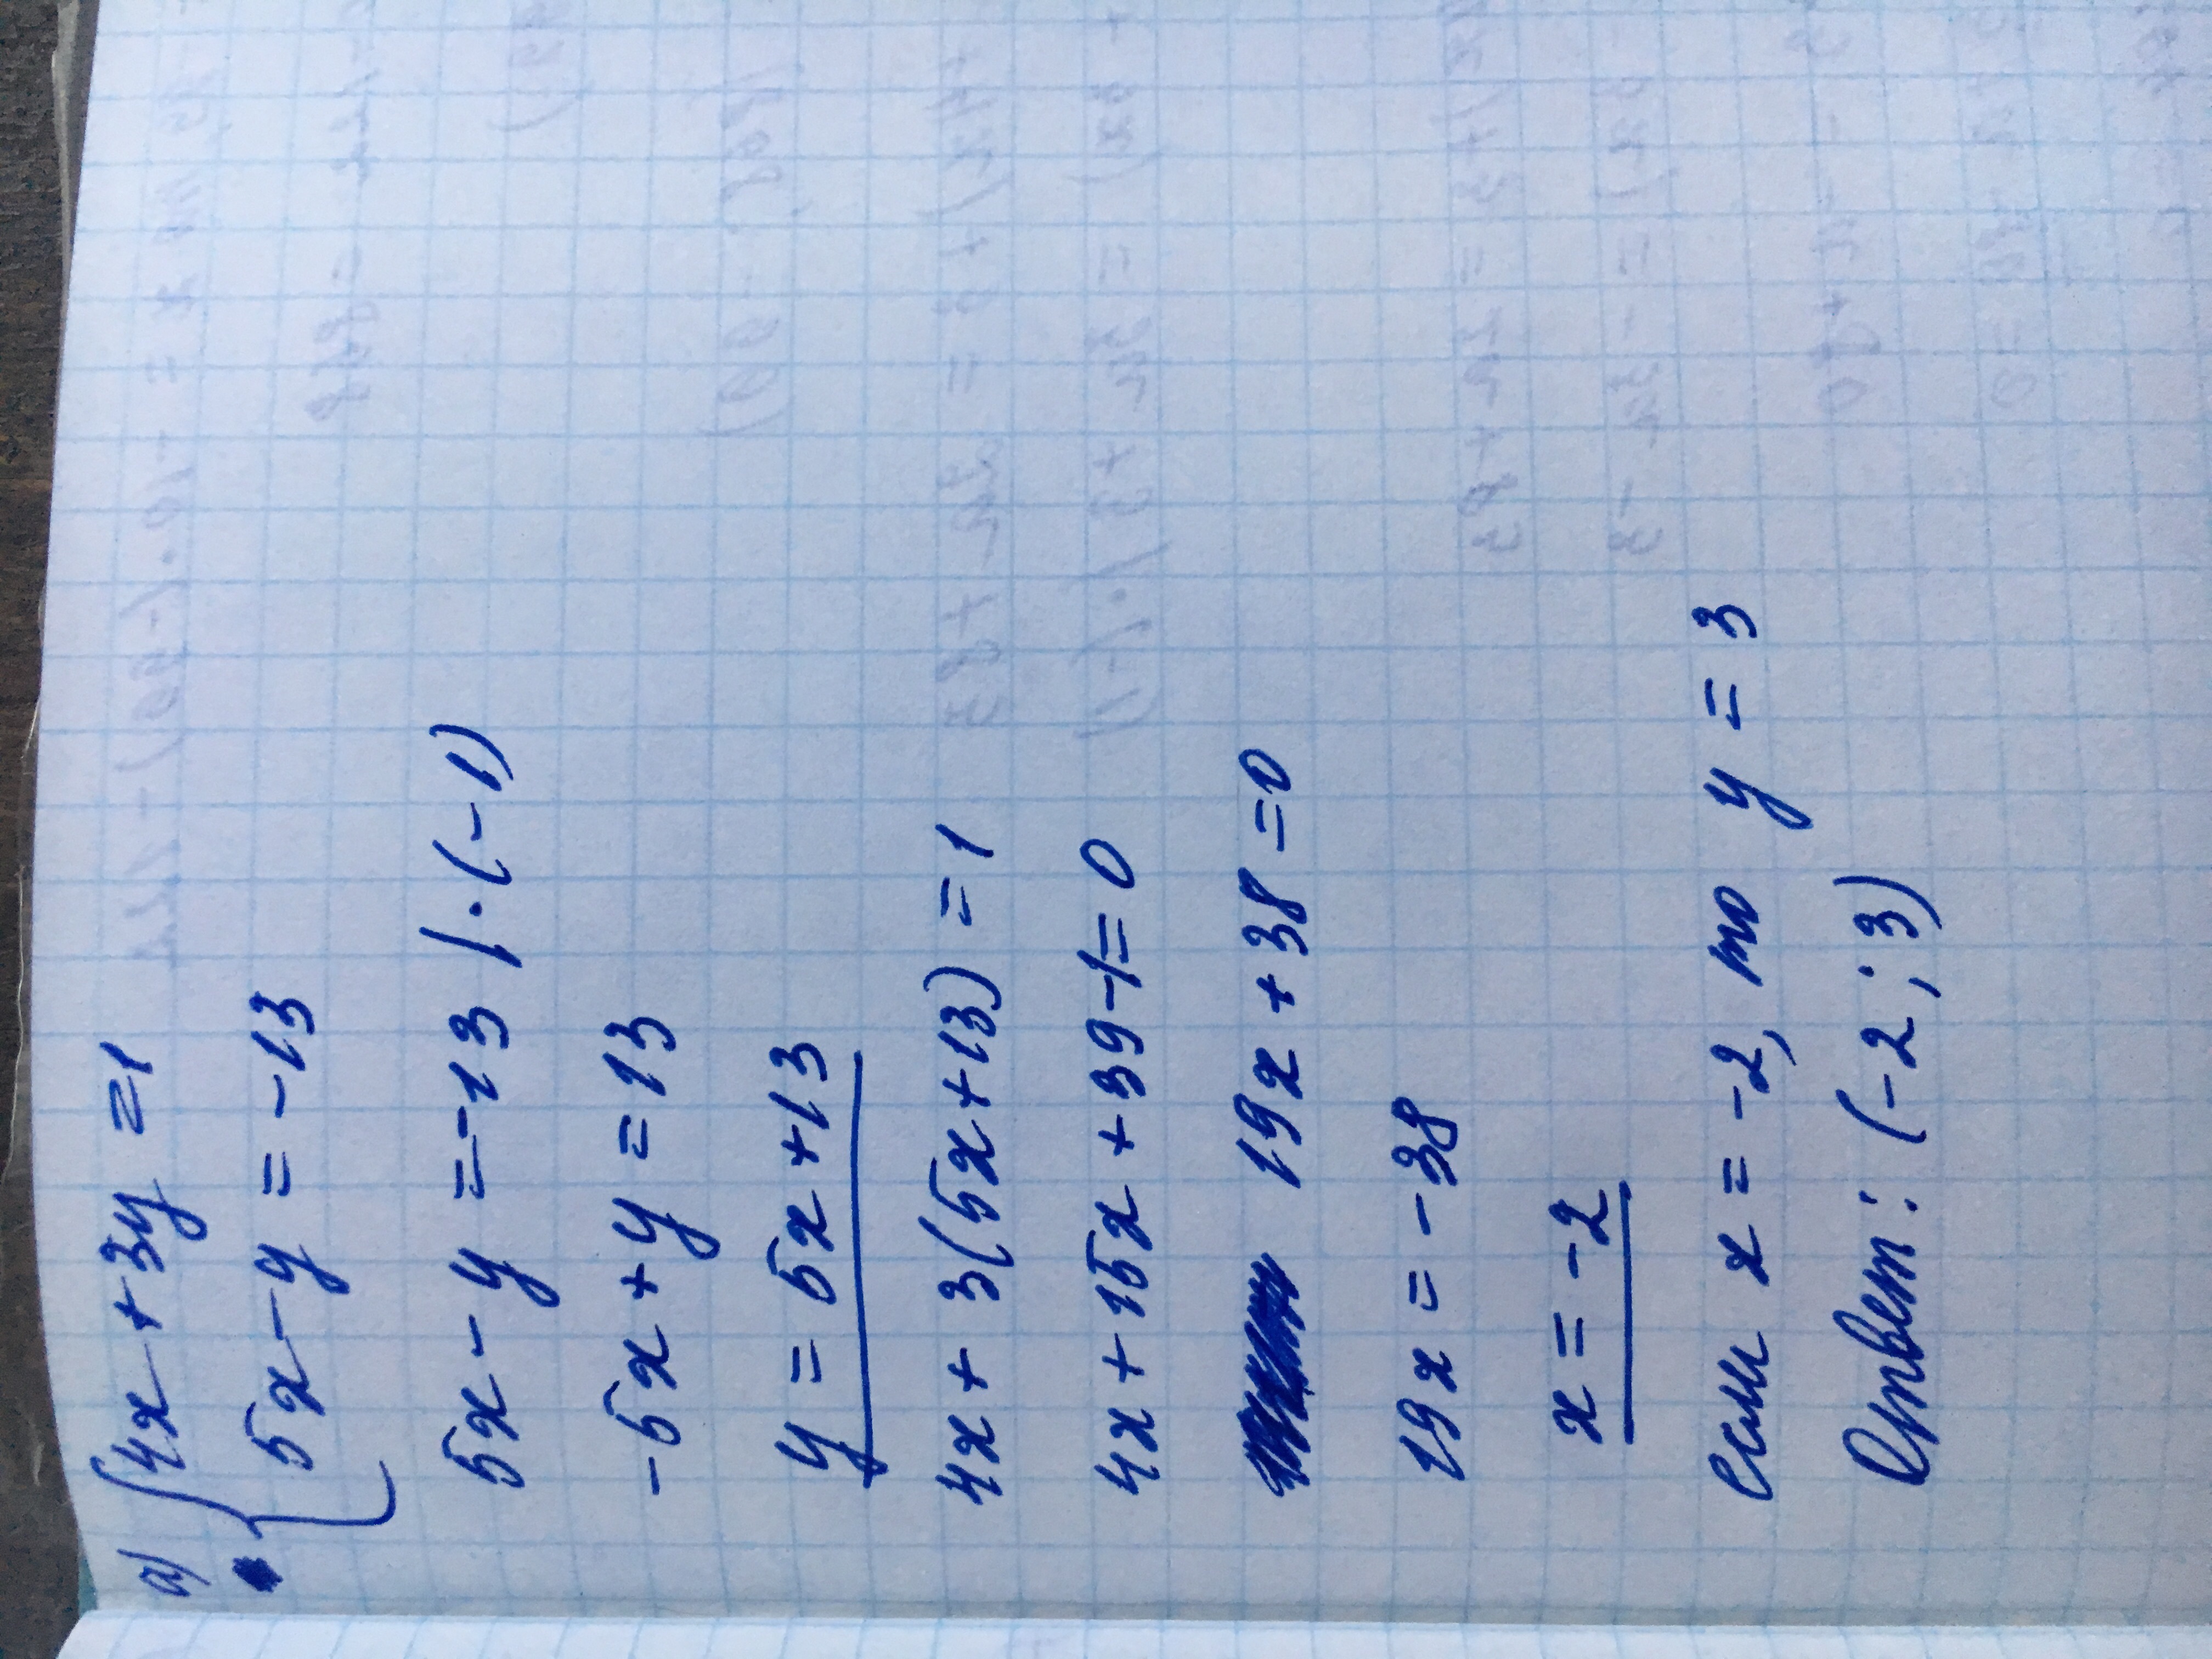 а) {4x+3y=1
5x-y=-13
5x-y=-13 |·(-1)
-5x+y=13
y=5x+13
4x+3(5x+13)=1
4x+15x+39-1=0
19x+38=0
19x=-38
x=-2
если x=-2, то y=3
Ответ: (-2; 3)